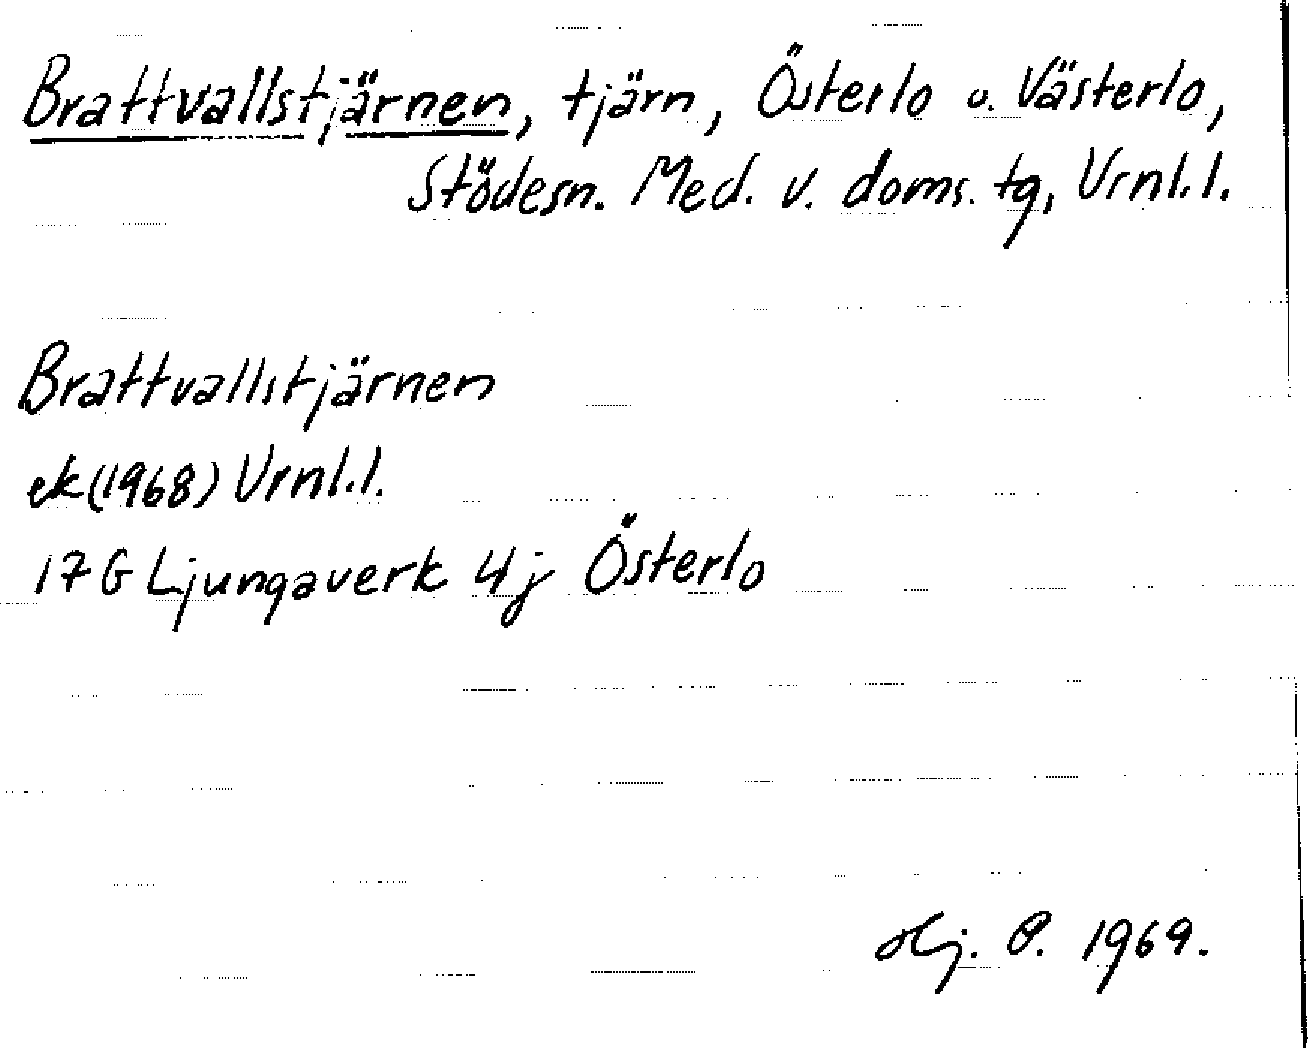 Brattvallstjärnen, tjärn, Österlo o. Västerlo,
Stödesn. Med. v. doms. tg, Vrnl.l.
Brattvallstjärnen
ek (1968) Vrnl.l.
17 G Ljungaverk 4j Österlo
Hj. P. 1969.